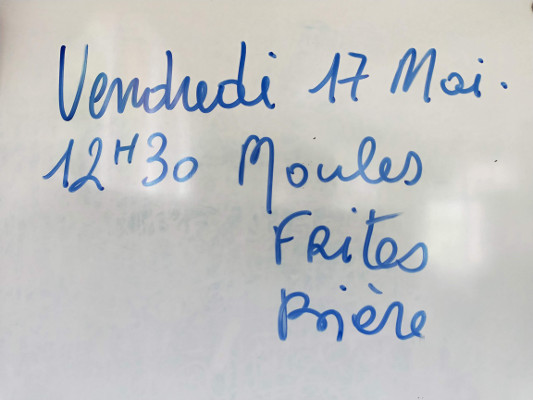 Vendredi 17 Mai.
12H30 Moules
FRites
Bière